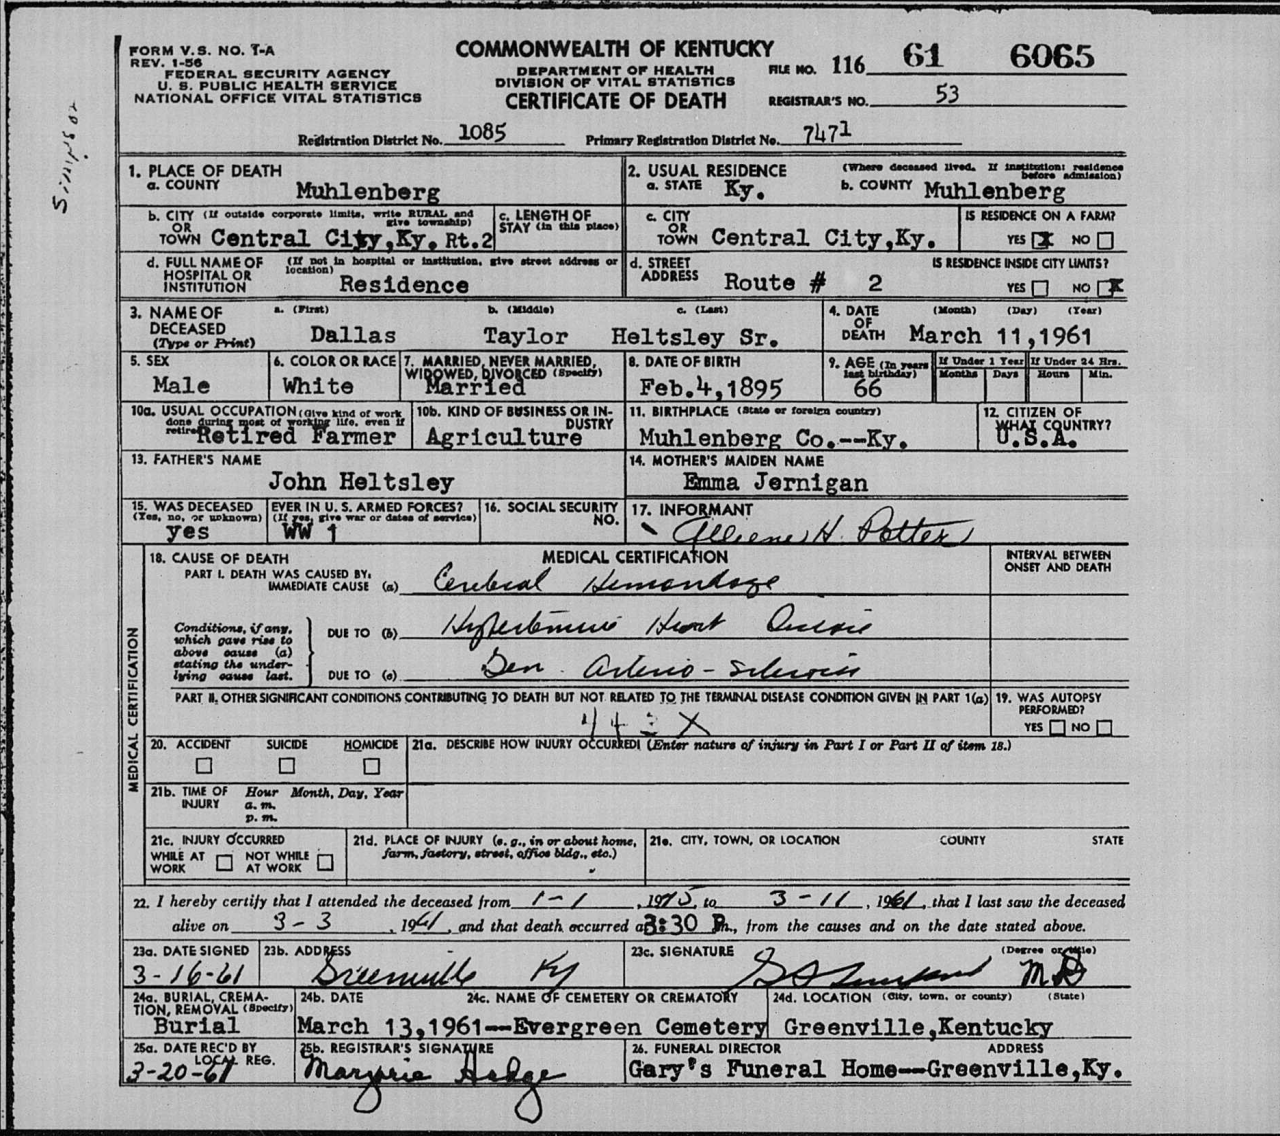 FORM V.S. NO. 1-A
REV. 1-56
FEDERAL SECURITY AGENCY
U. S. PUBLIC HEALTH SERVICE
NATIONAL OFFICE VITAL STATISTICS
COMMONWEALTH OF KENTUCKY
DEPARTMENT OF HEALTH
DIVISION OF VITAL STATISTICS
CERTIFICATE OF DEATH
FILE NO. 116 61 6065
REGISTRAR'S NO. 53
Registration District No. 1085 Primary Registration District No. 7471
Simpson
1. PLACE OF DEATH
a. COUNTY Muhlenberg
2. USUAL RESIDENCE (Where deceased lived. If institution: residence before admission)
a. STATE Ky. b. COUNTY Muhlenberg
b. CITY (If outside corporate limits, write RURAL and give township)
OR
TOWN Central City,Ky. Rt.2
c. LENGTH OF
STAY (in this place)
c. CITY
OR
TOWN Central City,Ky.
IS RESIDENCE ON A FARM?
YES X NO
d. FULL NAME OF (If not in hospital or institution, give street address or location)
HOSPITAL OR
INSTITUTION Residence
d. STREET
ADDRESS Route # 2
IS RESIDENCE INSIDE CITY LIMITS?
YES NO X
3. NAME OF
DECEASED
(Type or Print)
a. (First) b. (Middle) c. (Last)
Dallas Taylor Heltsley Sr.
4. DATE
OF
DEATH
(Month) (Day) (Year)
March 11,1961
5. SEX
Male
6. COLOR OR RACE
White
7. MARRIED, NEVER MARRIED,
WIDOWED, DIVORCED (Specify)
Married
8. DATE OF BIRTH
Feb.4,1895
9. AGE (In years
last birthday)
66
If Under 1 Year If Under 24 Hrs.
Months Days Hours Min.
10a. USUAL OCCUPATION (Give kind of work
done during most of working life, even if
retired) Retired Farmer
10b. KIND OF BUSINESS OR IN-
DUSTRY
Agriculture
11. BIRTHPLACE (State or foreign country)
Muhlenberg Co.--Ky.
12. CITIZEN OF
WHAT COUNTRY?
U.S.A.
13. FATHER'S NAME
John Heltsley
14. MOTHER'S MAIDEN NAME
Emma Jernigan
15. WAS DECEASED EVER IN U. S. ARMED FORCES?
(Yes, no, or unknown) (If yes, give war or dates of service)
yes WW 1
16. SOCIAL SECURITY
NO.
17. INFORMANT
H. Potter
MEDICAL CERTIFICATION
18. CAUSE OF DEATH MEDICAL CERTIFICATION
INTERVAL BETWEEN
ONSET AND DEATH
PART I. DEATH WAS CAUSED BY:
IMMEDIATE CAUSE (a) Cerebral Hemorrhage
Conditions, if any,
which gave rise to
above cause (a)
stating the under-
lying cause last.
DUE TO (b) Hypertensive Heart Disease
DUE TO (c) Gen. Arterio-sclerosis
PART II. OTHER SIGNIFICANT CONDITIONS CONTRIBUTING TO DEATH BUT NOT RELATED TO THE TERMINAL DISEASE CONDITION GIVEN IN PART 1(a)
19. WAS AUTOPSY
PERFORMED?
YES NO
20. ACCIDENT SUICIDE HOMICIDE
21a. DESCRIBE HOW INJURY OCCURRED! (Enter nature of injury in Part I or Part II of item 18.)
21b. TIME OF
INJURY
Hour Month, Day, Year
a. m.
p. m.
21c. INJURY OCCURRED
WHILE AT
WORK
NOT WHILE
AT WORK
21d. PLACE OF INJURY (e. g., in or about home,
farm, factory, street, office bldg., etc.)
21e. CITY, TOWN, OR LOCATION COUNTY STATE
22. I hereby certify that I attended the deceased from 1-1, 19 to 3-11, 1961, that I last saw the deceased
alive on 3-3, 1961, and that death occurred at 3:30 P.m., from the causes and on the date stated above.
23a. DATE SIGNED
3-16-61
23b. ADDRESS
Greenville Ky
23c. SIGNATURE (Degree or title)
M.D
24a. BURIAL, CREMA-
TION, REMOVAL (Specify)
Burial
24b. DATE 24c. NAME OF CEMETERY OR CREMATORY
March 13,1961--Evergreen Cemetery
24d. LOCATION (City, town, or county) (State)
Greenville,Kentucky
25a. DATE REC'D BY
LOCAL REG.
3-20-61
25b. REGISTRAR'S SIGNATURE
Marjorie Hodge
26. FUNERAL DIRECTOR ADDRESS
Gary's Funeral Home--Greenville,Ky.